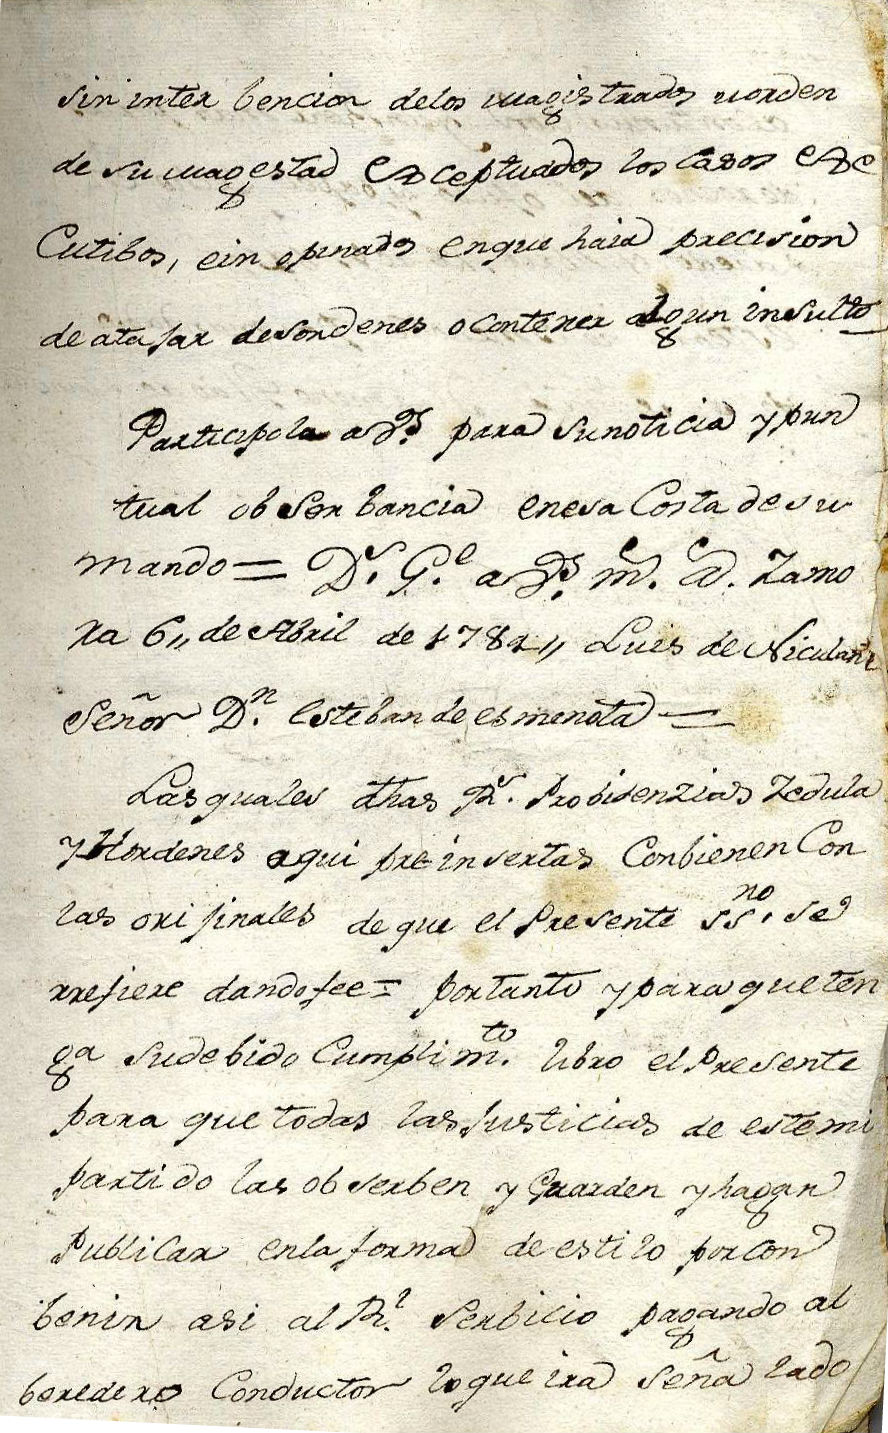 sin inter bencion delos magistrados uorden
de su magestad exceptuados los casos exe
Cutibos, ein opinados enque haia precision
de ata jar desordenes o contener algun insulto
Participola a Vs. para sunoticia y pun
tual obserbancia enesa Costa de su
mando = Ds. Ge. a Vs. ms. as. Zamo
ra 6,, de Abril de 1781,, Luis de Niculant
Señor Dn. Esteban de esmenota =
Las quales dhas Rs. Probidenzias Zedula
y Hordenes aqui pre insertas Conbienen Con
las orijinales de que el Presente ssno. se
rrefiere dandofee = portanto y para que ten
ga sudebido Cumplimto. libro el Presente
para que todas las Justicias de este mi
partido las obserben y Guarden y hagan
Publicar enla forma de estilo por con
benir asi al Rl. Serbicio pagando al
beredero Conductor lo que ira Seña lado